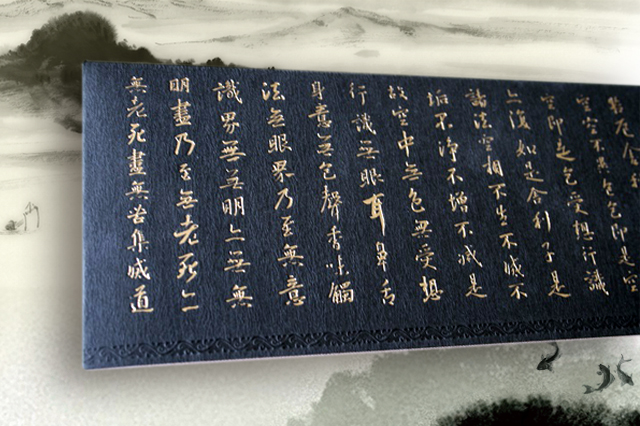 空空不異色色即是空
空即是色受想行識
亦復如是舍利子是
諸法空相不生不滅不
垢不淨不增不減是
故空中無色無受想
行識無眼耳鼻舌
身意无色聲香味觸
法无眼界乃至無意
識界無无明亦無無
明盡乃至無老死亦
無老死盡無苦集滅道